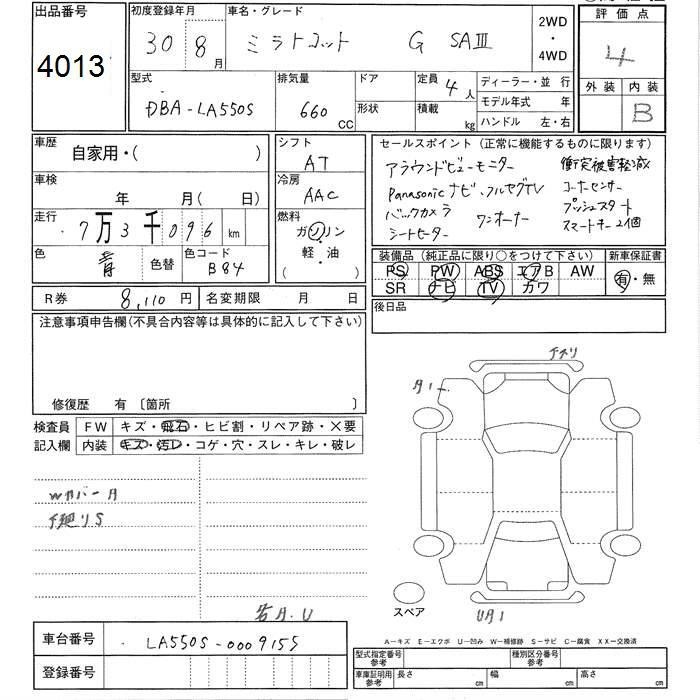 出品番号
4013
初度登録年月
30 8 月
車名・グレード
ミラトコット G SAⅢ
2WD
・
4WD
評価点
4
外装 内装
B
型式
DBA-LA550S
排気量
660 CC
ドア
形状
定員
4人
積載
kg
ディーラー・並行
モデル年式 年
ハンドル 左・右
車歴
自家用・( )
シフト
AT
車検
年 月( 日)
冷房
AAC
走行
7万3千096 km
燃料
ガソリン
・
軽・油
( )
色
青
色替
色コード
B84
R券 8,110 円
名変期限 月 日
セールスポイント (正常に機能するものに限ります)
アラウンドビューモニター
衝突被害軽減
Panasonicナビ、フルセグTV
コーナーセンサー
バックカメラ
ワンオーナー
プッシュスタート
シートヒーター
スマートキー2個
装備品 (純正品に限り○をつけて下さい)
新車保証書
PS PW ABS エアB AW
SR ナビ TV カワ
有・無
後日品
注意事項申告欄(不具合内容等は具体的に記入して下さい)
修復歴 有 〔箇所 〕
検査員
記入欄
FW キズ・飛石・ヒビ割・リペア跡・×要
内装 キズ・汚レ・コゲ・穴・スレ・キレ・破レ
Wカバー月
下廻りS
A・U
スペア
U月1
A−キズ E−エクボ U−凹み W−補修跡 S−サビ C−腐食 XX−交換済
車台番号
LA550S-0009155
登録番号
型式指定番号
参考
種別区分番号
参考
車庫証明用
参考
長さ cm
幅 cm
高さ cm